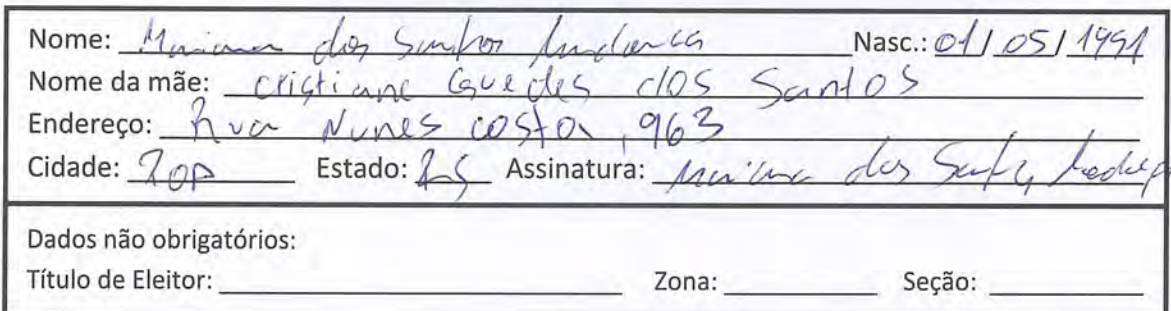 Nome: dos Santos Nasc.: 01/05/1991
Nome da mãe: Cristiane Guedes dos Santos
Endereço: Rua Nunes Costa, 963
Cidade: Estado: RS Assinatura: dos
Dados não obrigatórios:
Título de Eleitor: Zona: Seção: